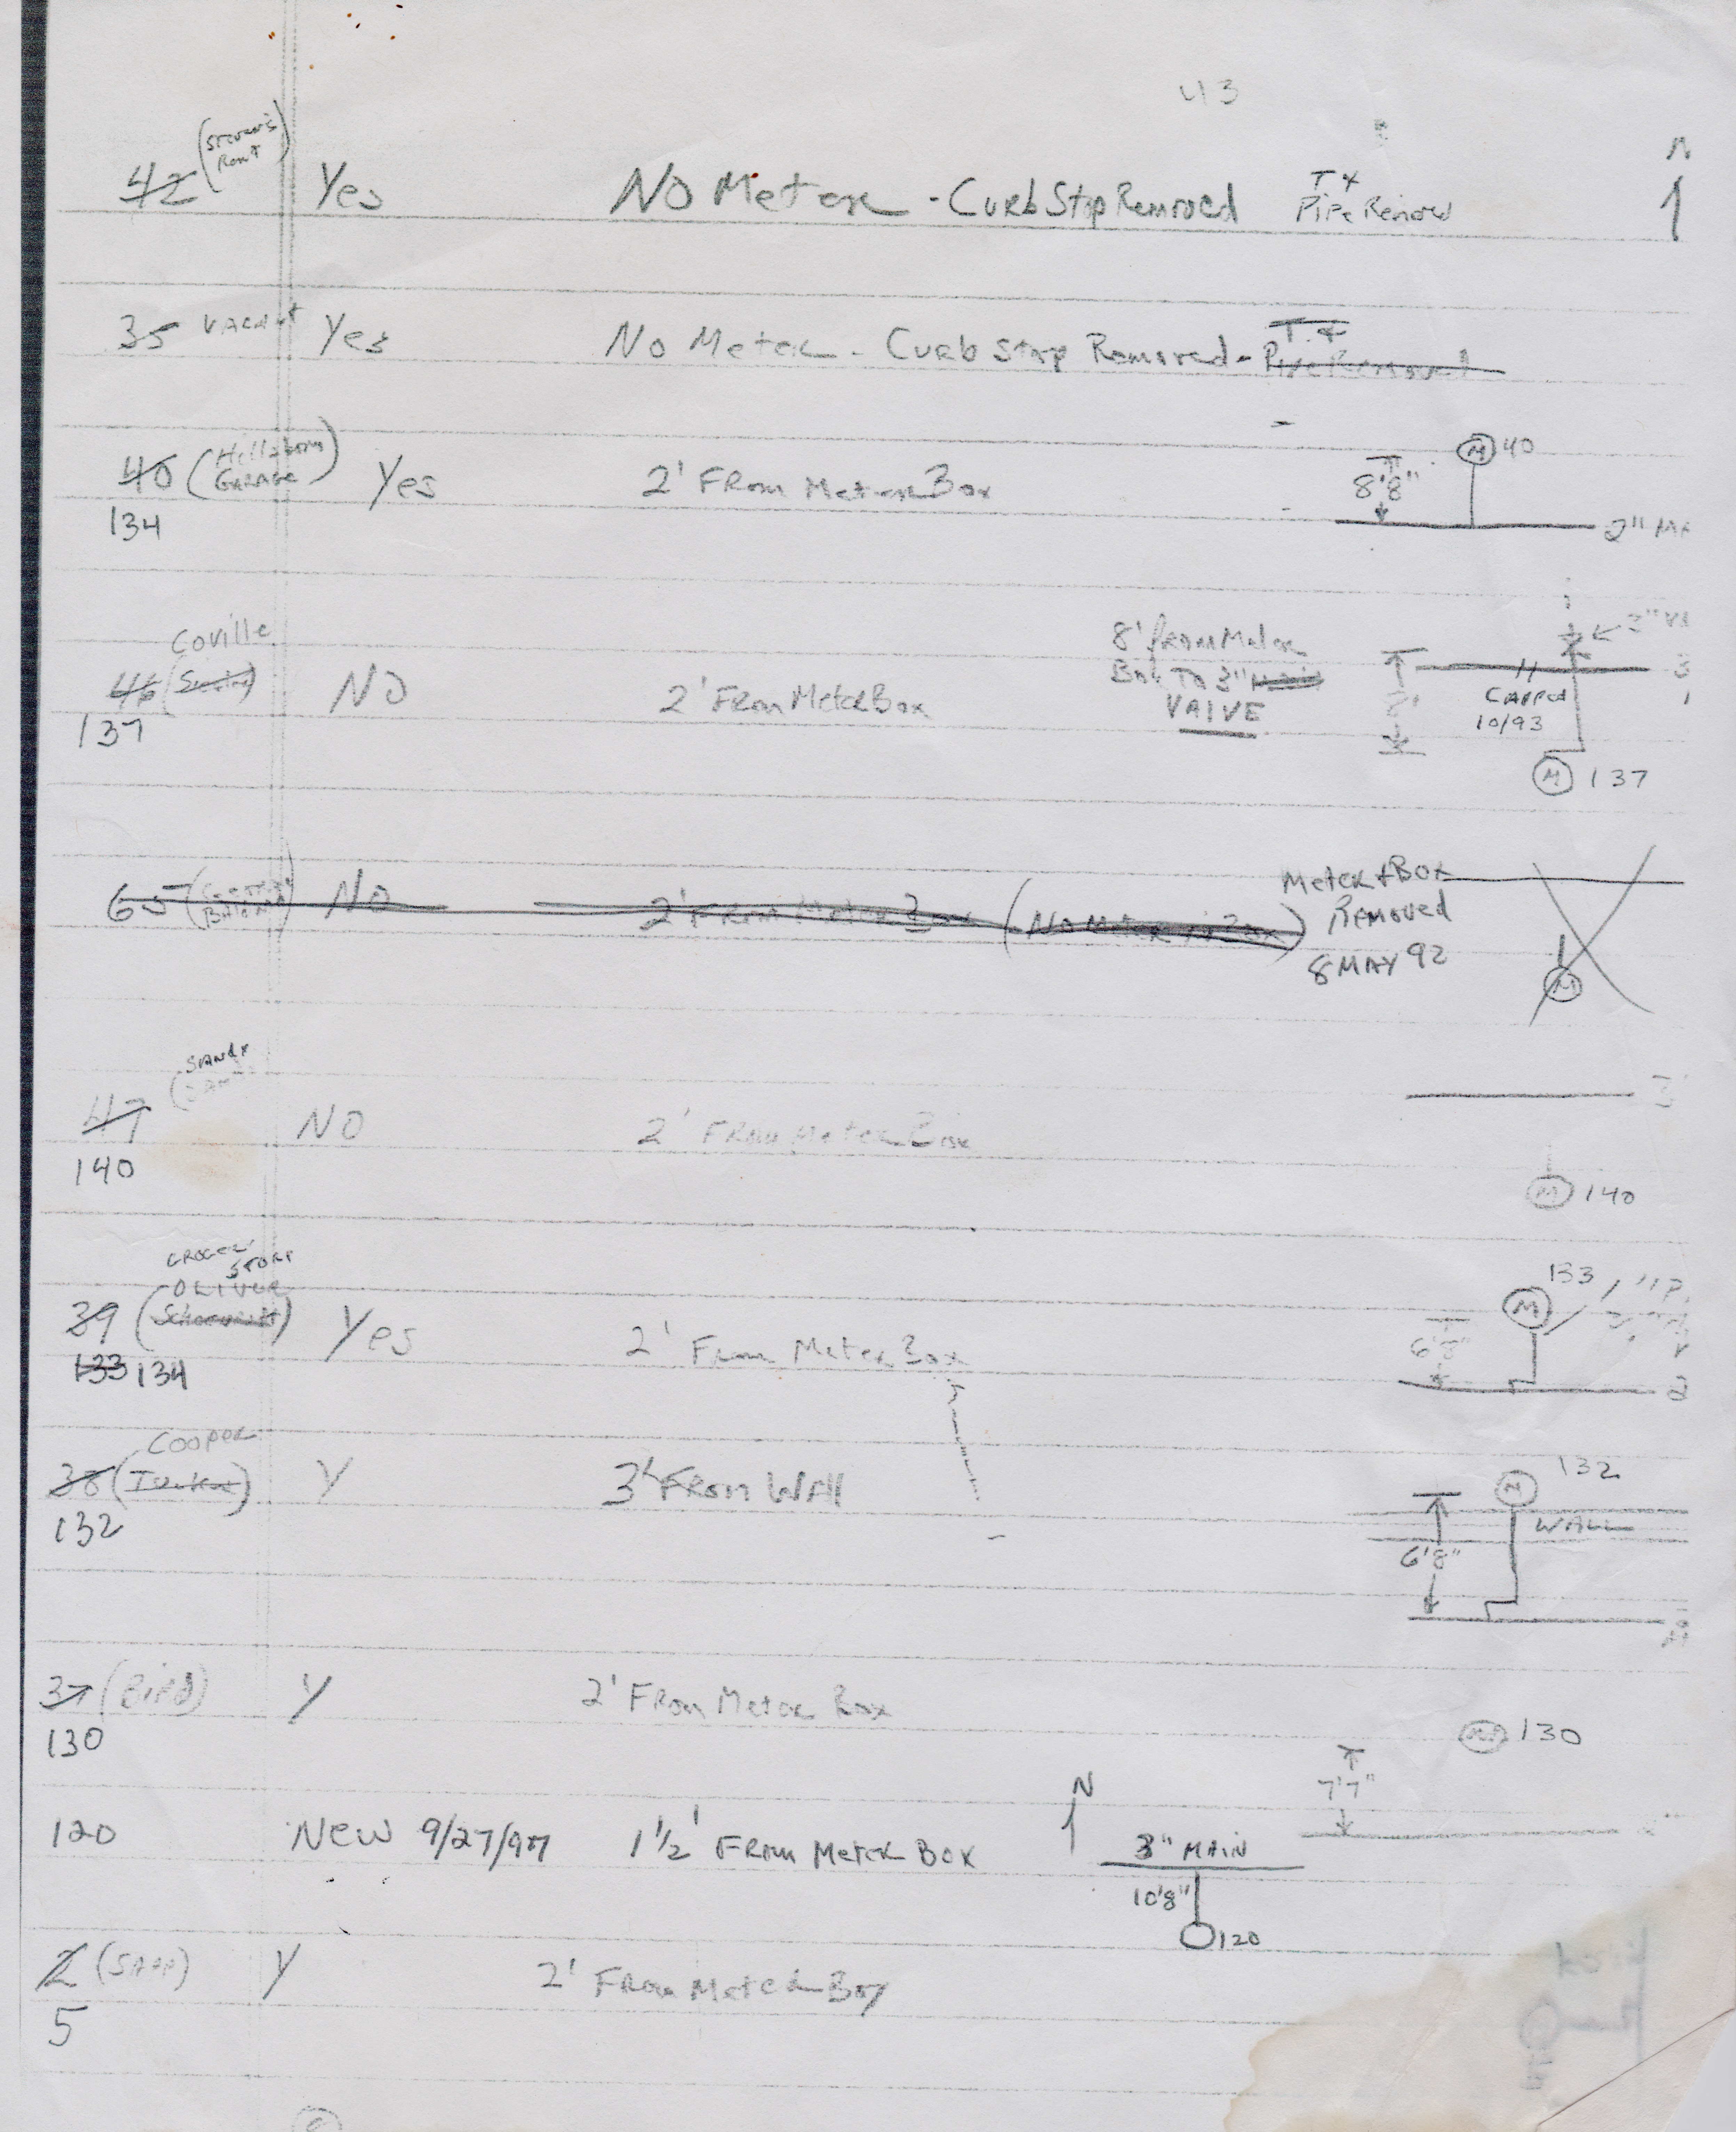 43
(Steven's
42 Yes No Meter - Curb Stop Removed T &
Pipe Remov
N
35 VACANT Yes No Meter - Curb Stop Removed - T. &
Pipe Removed
40 (Hillsboro
GARAGE) Yes 2' From Meter Box
134
M 40
8'8"
2" MA
Coville
46 NO 2' From Meter Box
137
8' from Meter
Box To 3" Main
VALVE
3" VA
3
8'
CAPPED
10/93
M 137
65 No 2' From Meter Box (No Meter in Box) Meter & Box
Removed
8 MAY 92
M
SANDY
47 NO 2' From Meter Box
140
3"
M 140
GROCERY
STORE
OLIVER
39 Yes 2' From Meter Box
133 134
133
M
6'8"
2
Cooper
38 Y 3' From Wall
132
M 132
WALL
6'8"
37 (Bird) Y 2' From Meter Box
130
M 130
7'7"
120 New 9/27/97 1 1/2' From Meter Box
N
3" MAIN
10'8"
120
2 Y 2' From Meter Box
5